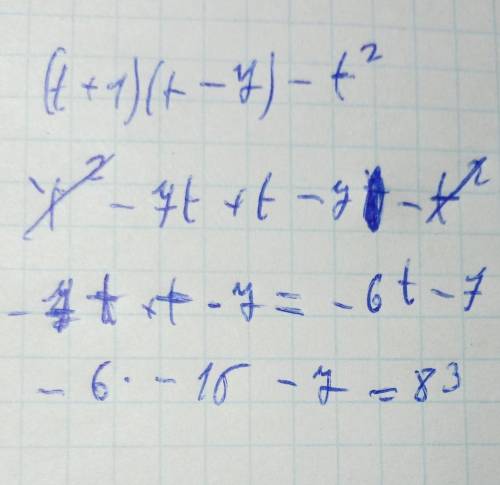 (t+1)(t-7)-t²
t²-7t+t-7-t²
-7t+t-7=-6t-7
-6·-15-7=83